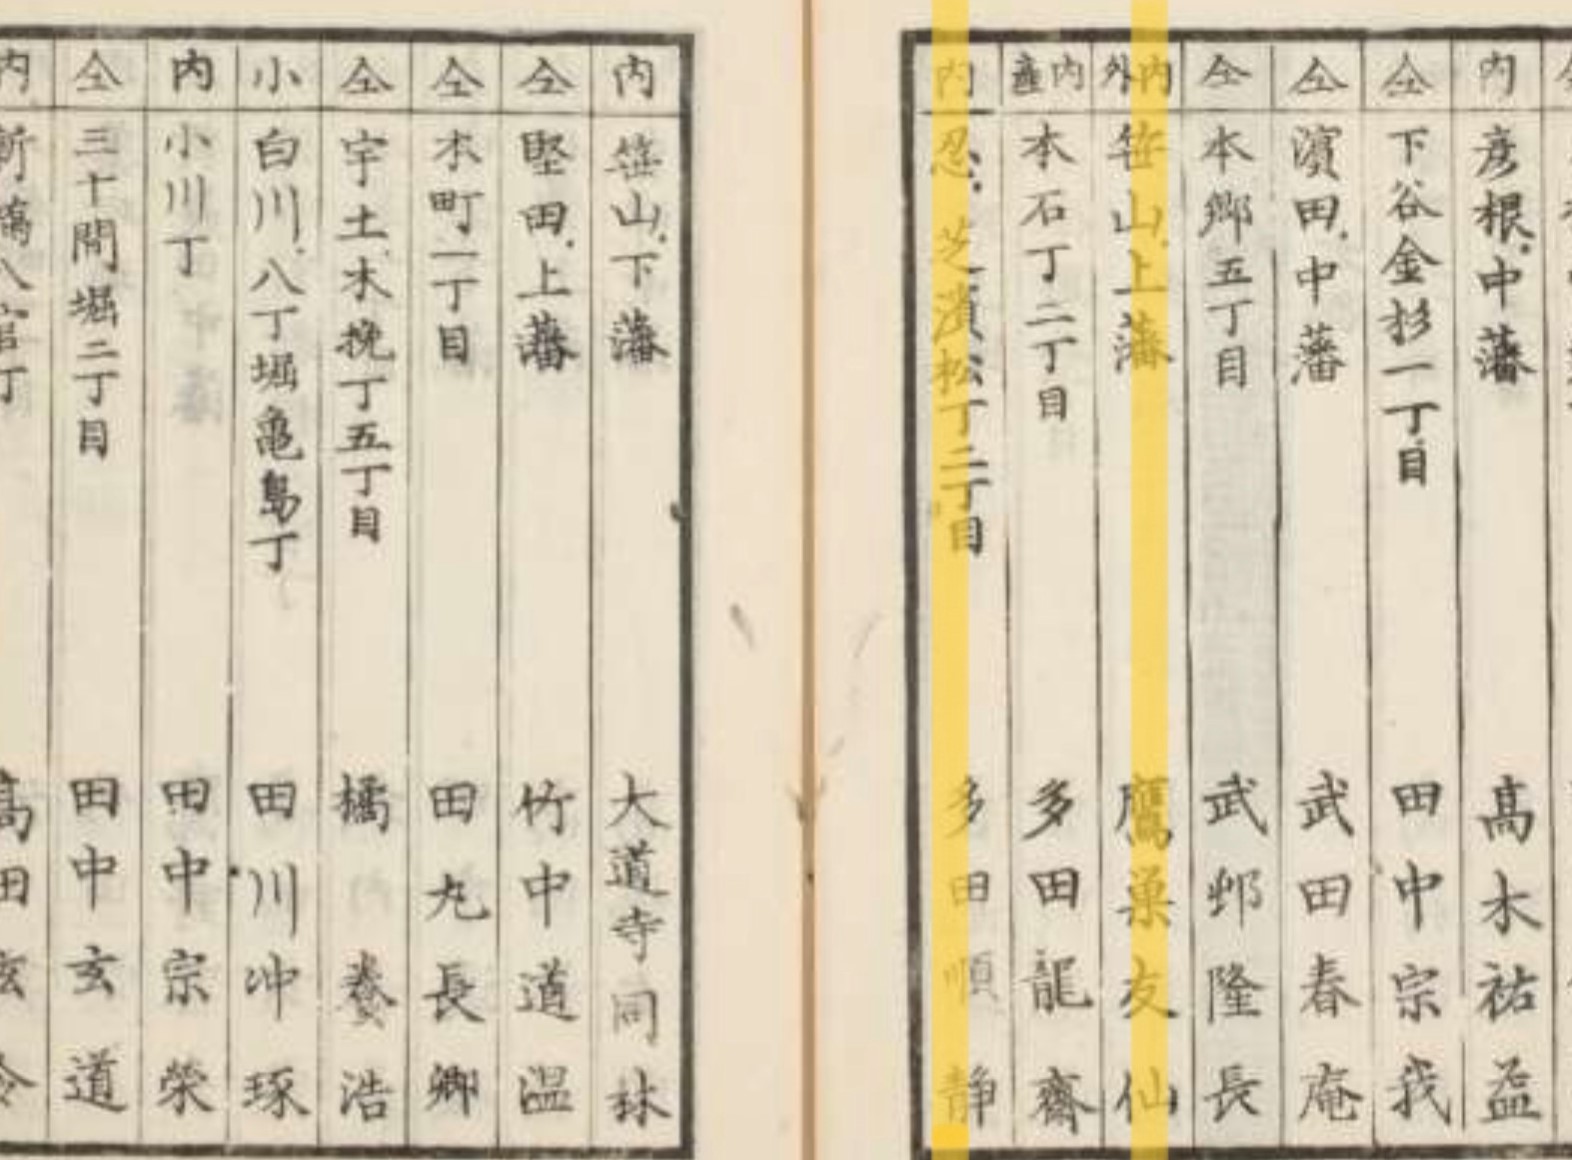 内 彦根中藩 髙木祐益
仝 下谷金杉一丁目 田中宗我
仝 濱田中藩 武田春庵
仝 本郷五丁目 武邨隆長
内外 笹山上藩 鷹巣友仙
内産 本石丁二丁目 多田龍齋
内 忍芝濱松丁二丁目 多田順静
内 笹山下藩 大道寺同林
仝 堅田上藩 竹中道温
仝 本町一丁目 田丸長卿
仝 宇土木挽丁五丁目 橘養浩
小 白川八丁堀亀島丁 田川冲琢
内 小川丁 田中宗榮
仝 三十間堀二丁目 田中玄道
内 新橋八官丁 髙田玄